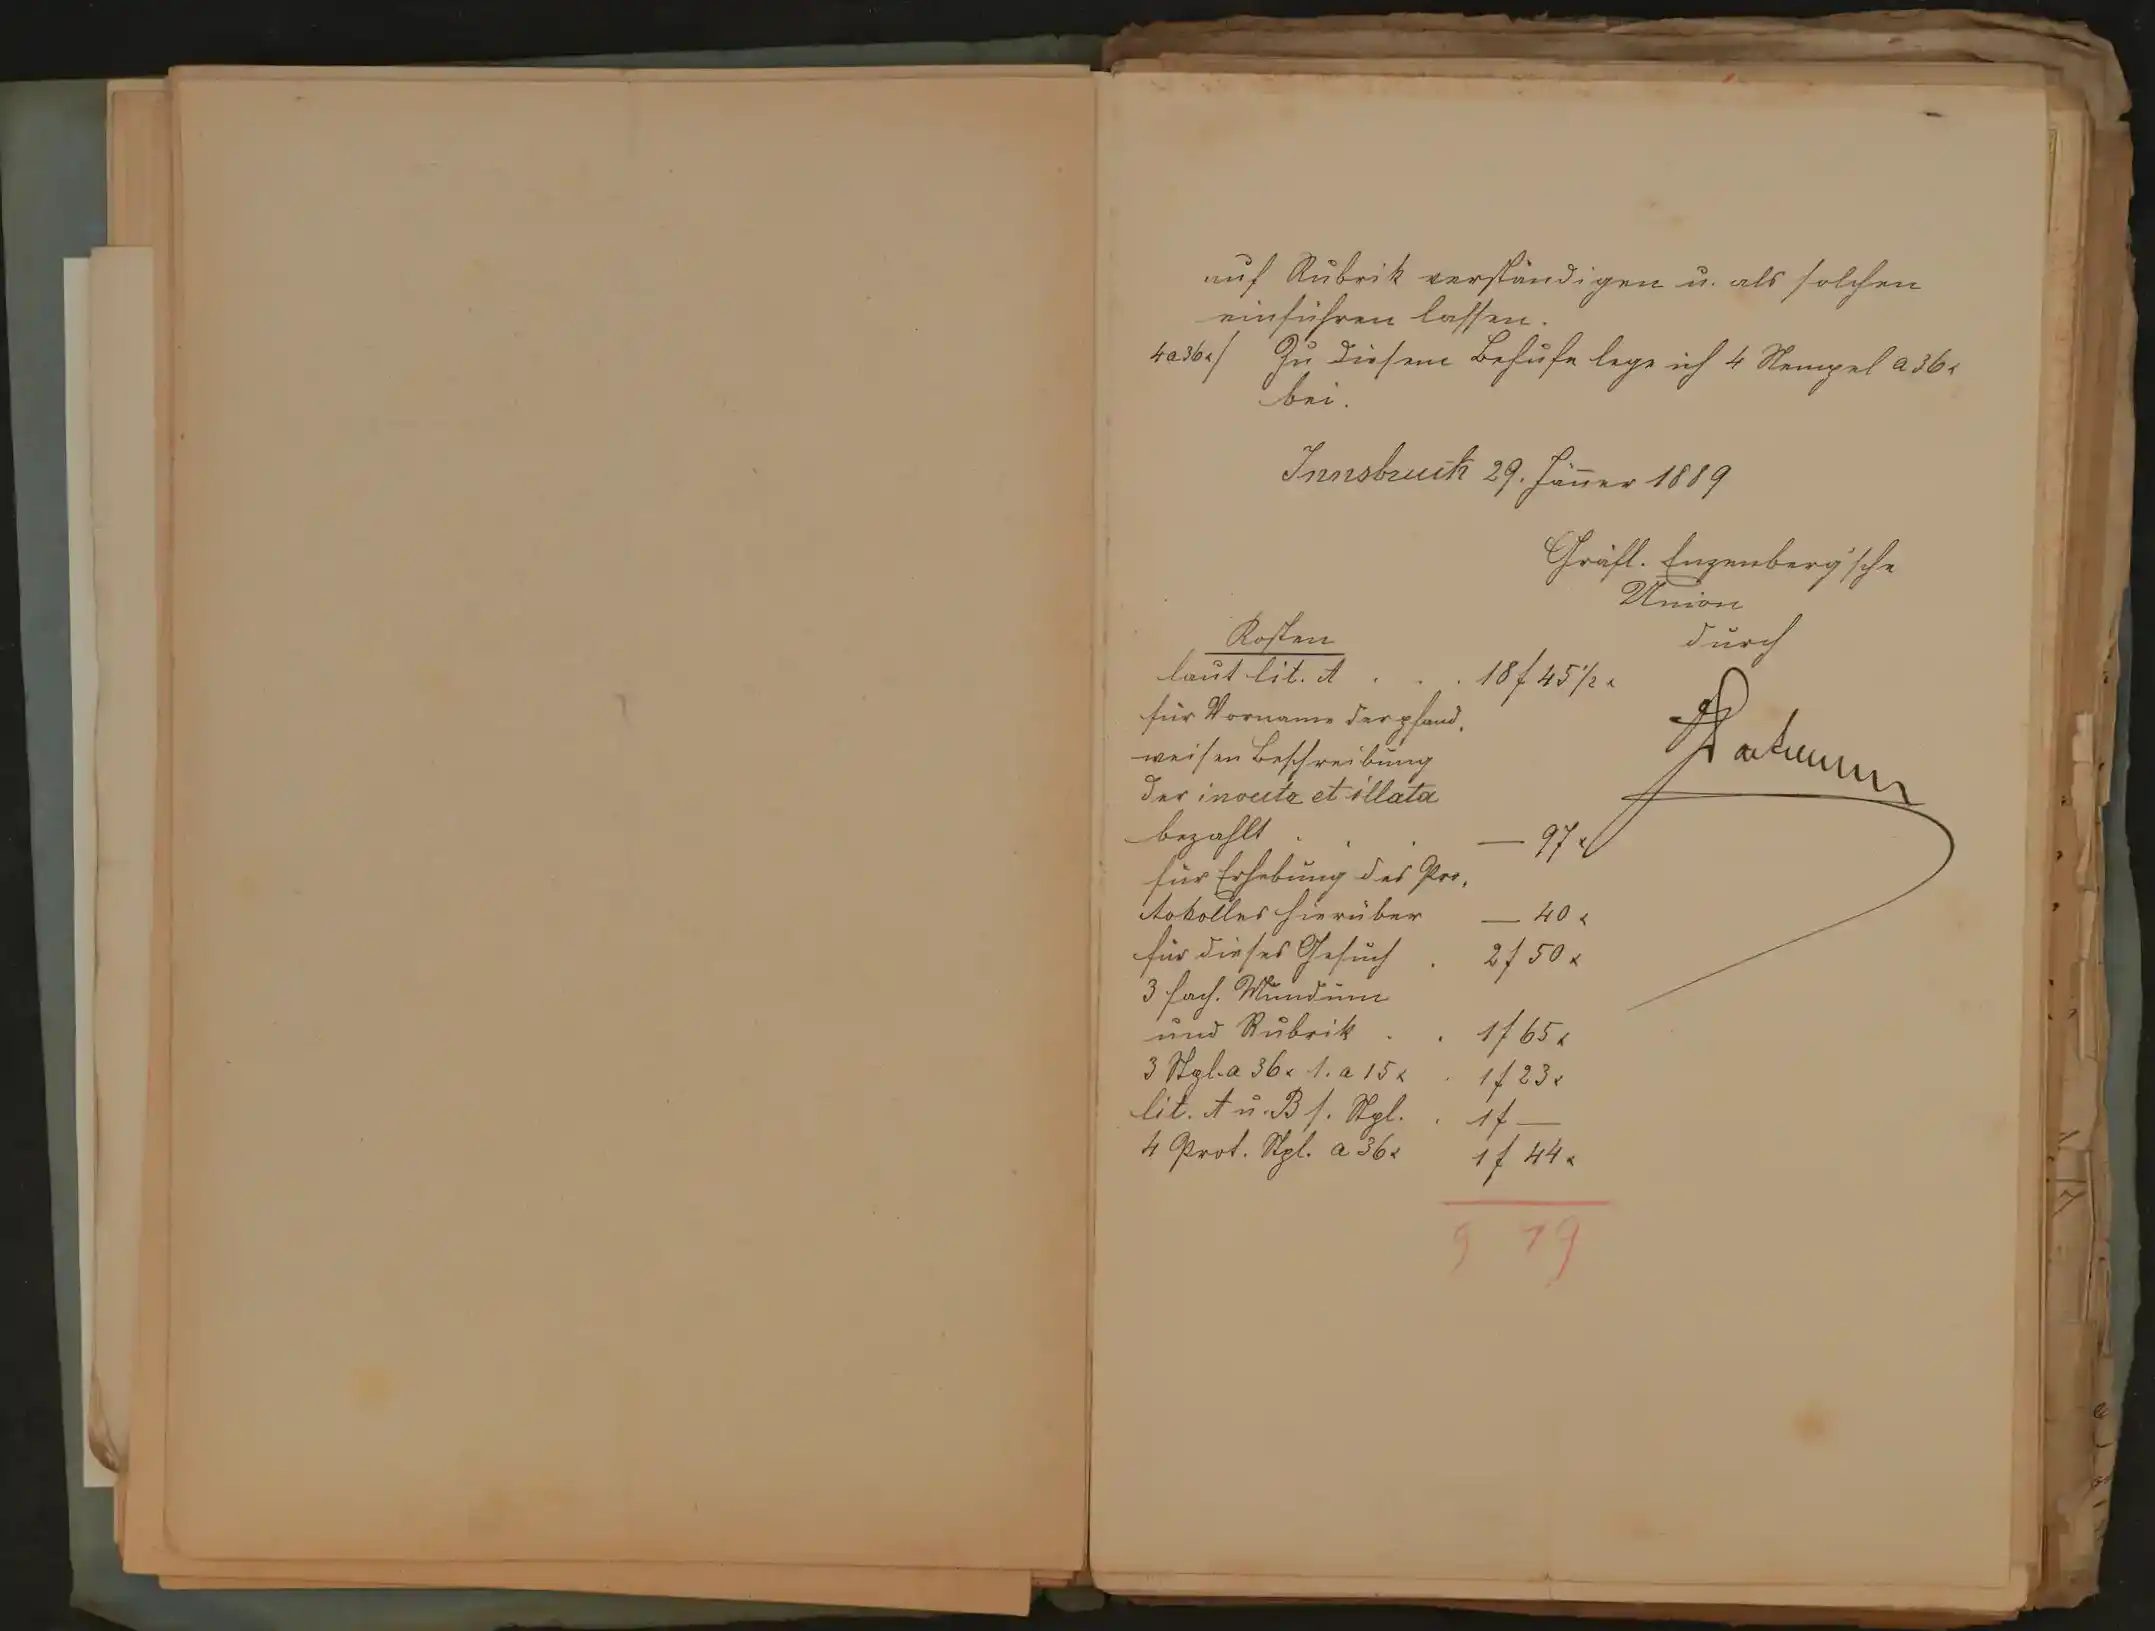 auf Rubrik verständigen u. als solchen
einführen lassen.
4 a 36 x/ Zu diesem Behufe lege ich 4 Stempel a 36 x
bei.
Innsbruck 29. Jänner 1889
Gräfl. Enzenberg'sche
Union
durch
Kosten
laut lit. A . . . 18 f 45 1/2 x
für Vorname der pfand,
weisen Beschreibung
der invecta et illata
bezahlt . . . — 97 x
für Erhebung des Pro,
tokolles hierüber — 40 x
für dieses Gesuch . 2 f 50 x
3 fach. Mundum
und Rubrik . . 1 f 65 x
3 Stpl. a 36 x 1. a 15 x . 1 f 23 x
lit. A u. B f. Stpl. . 1 f —
4 Prot. Stpl. a 36 x 1 f 44 x
9 19